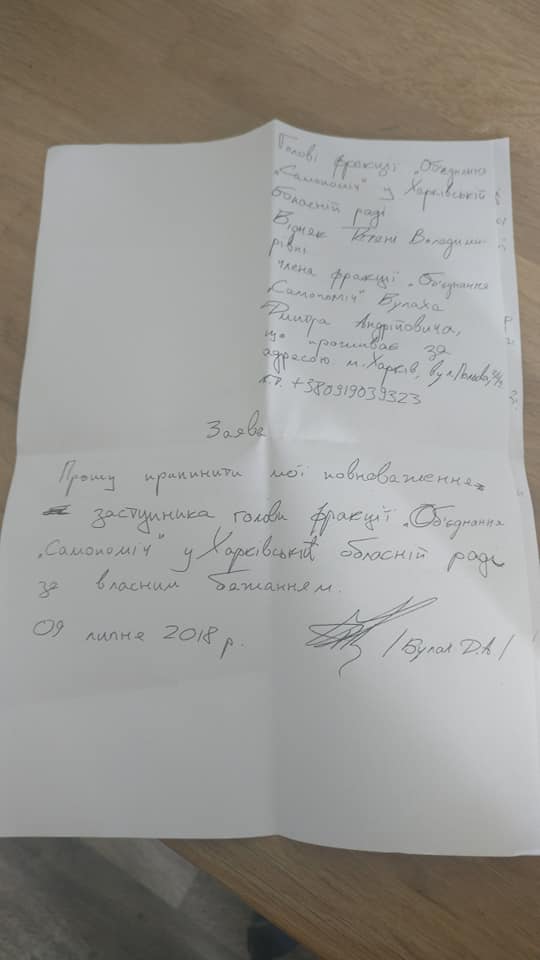 Голові фракції „Об'єднання
„Самопоміч" у Харківській
обласній раді
Відняк Володими-
рівні
члена фракції „Об'єднання
„Самопоміч" Булаха
Дмитра Андрійовича,
що проживає за
адресою м. Харків, вул.
к.т. +380919039323
Заява
Прошу припинити мої повноваження
застцпника голови фракції „Об'єднання
„Самопоміч" у Харківській обласній раді
за власним бажанням.
09 липня 2018 р.
/Булах Д.А/